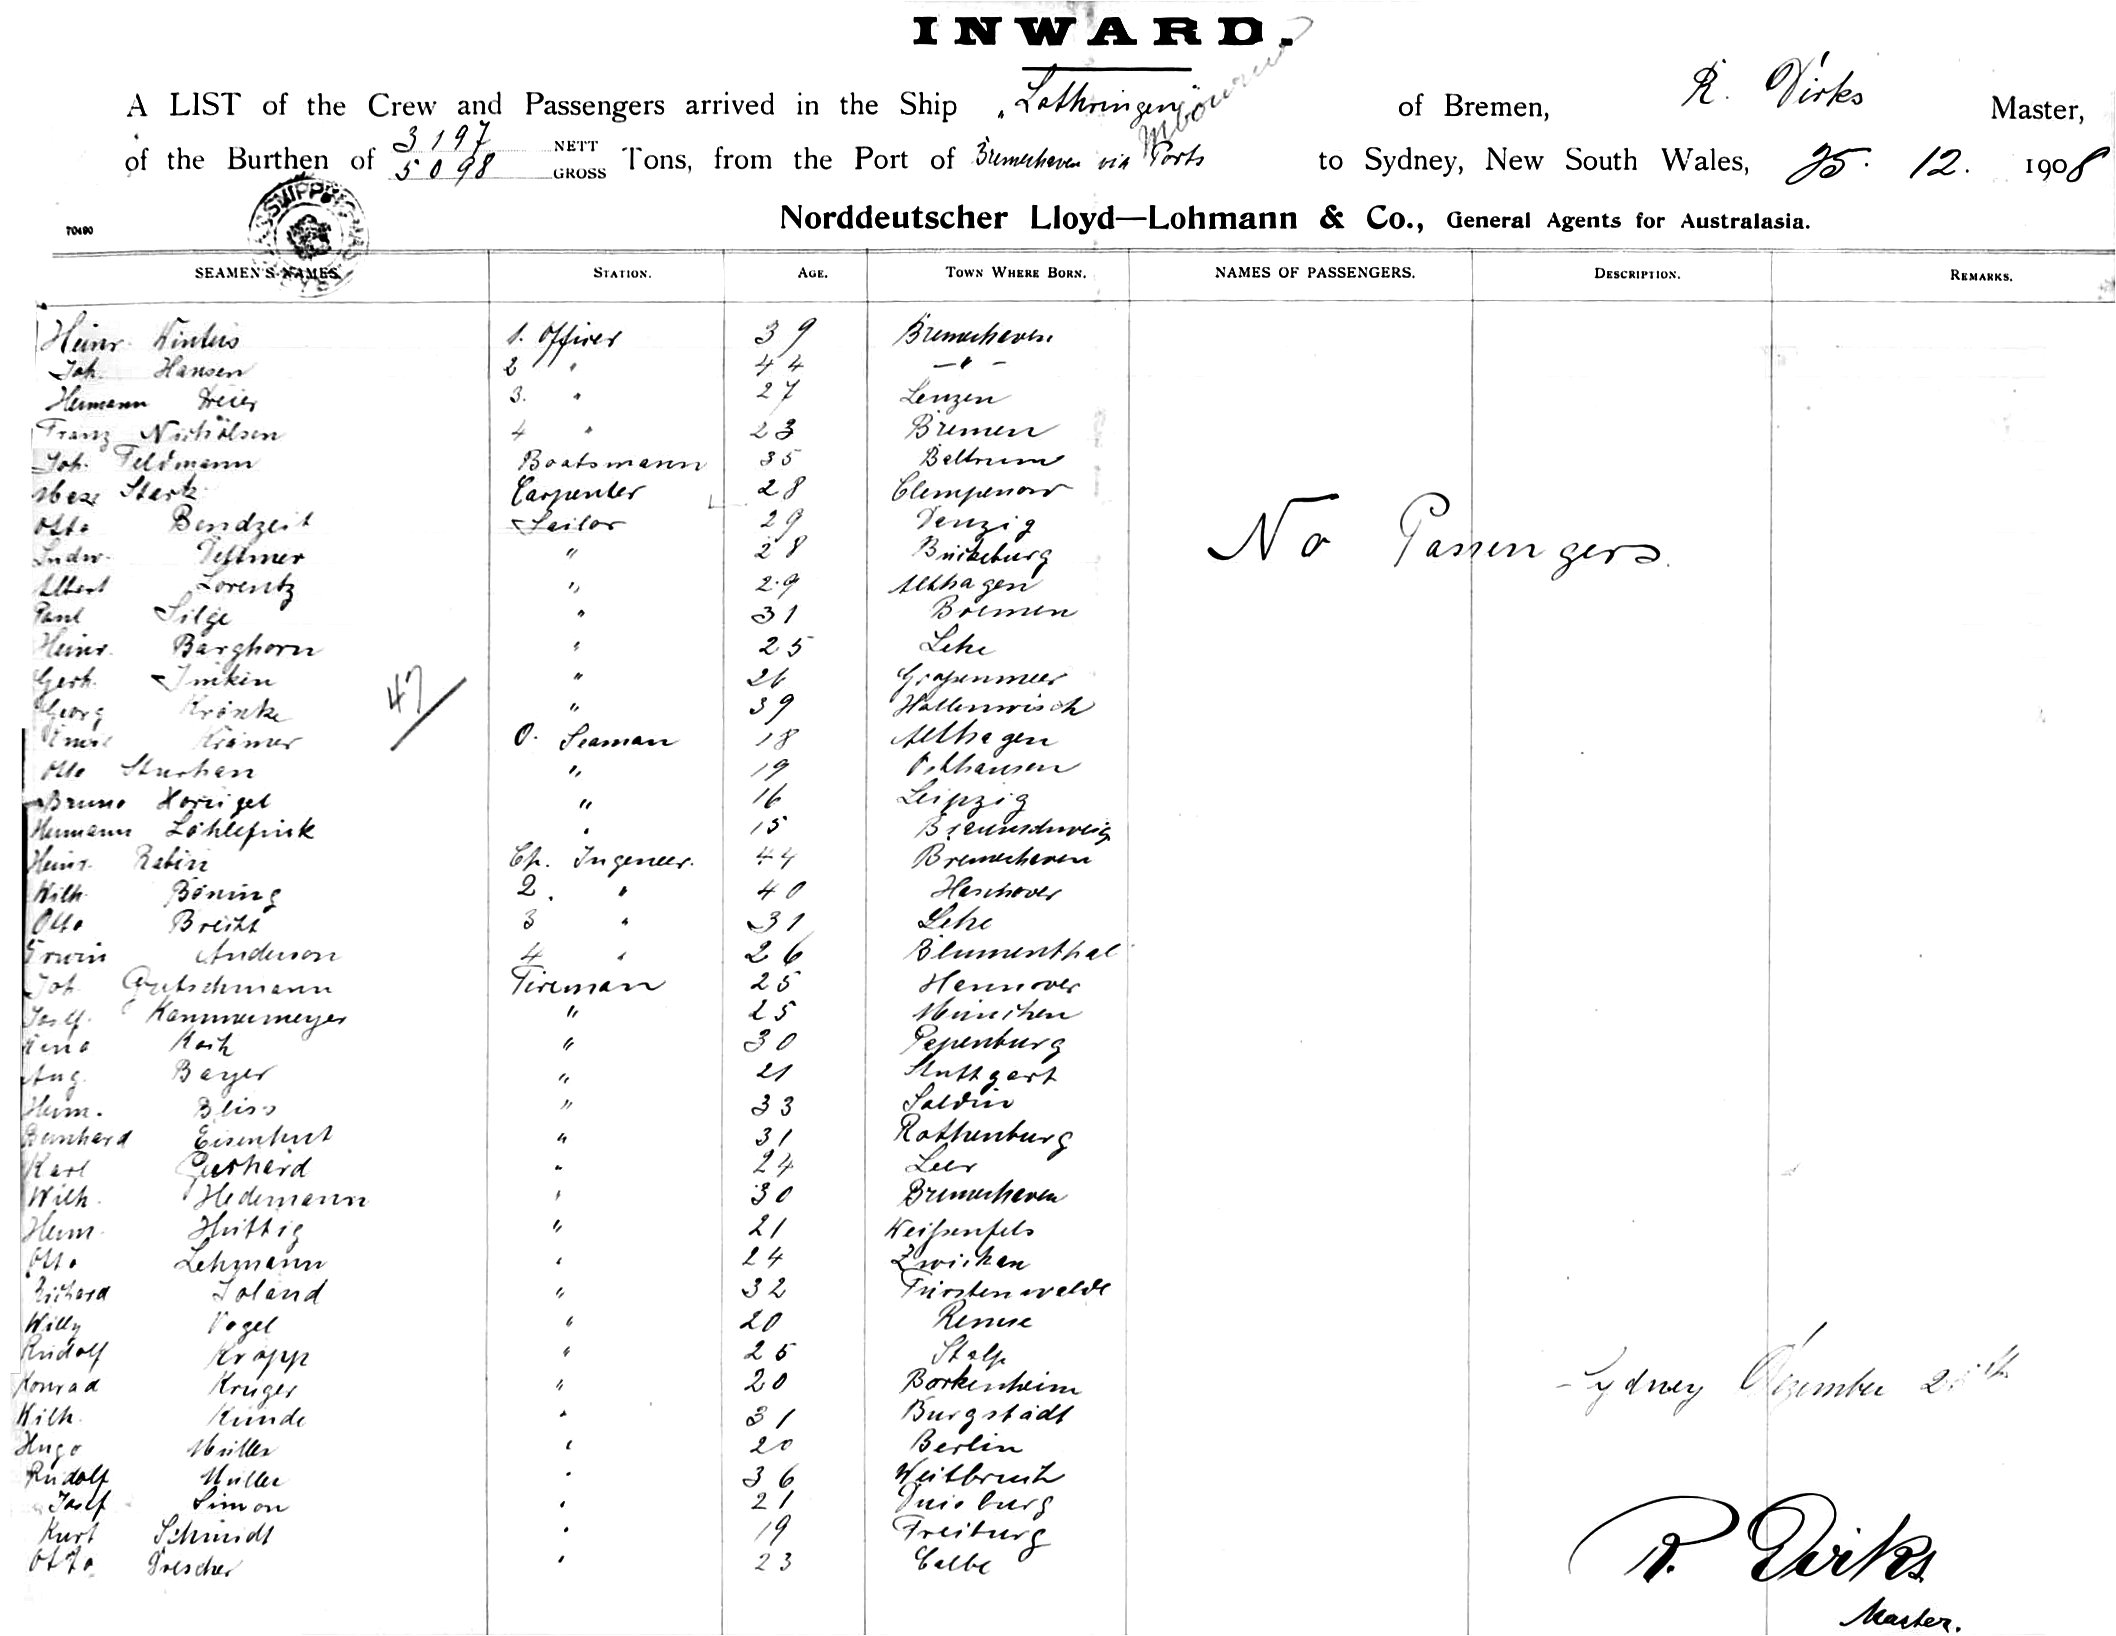 INWARD.
A LIST of the Crew and Passengers arrived in the Ship „Lothringen" of Bremen, R. Dirks Master,
of the Burthen of 3197 NETT 5098 GROSS Tons, from the Port of Bremerhaven via Ports to Sydney, New South Wales, 25. 12. 1908
Melbourne
Norddeutscher Lloyd—Lohmann & Co., General Agents for Australasia.
70490
SEAMEN'S NAMES. STATION. AGE. TOWN WHERE BORN. NAMES OF PASSENGERS. DESCRIPTION. REMARKS.
Heinr. Winters 1. Officer 39 Bremerhaven
Joh. Hansen 2 " 44 — " —
Hermann Dreier 3. " 27 Lenzen
Franz Nicholsen 4 " 23 Bremen
Joh. Feldmann Boatsmann 35 Baltrum
Max Stark Carpenter 28 Clempenow
Otto Bendzeit Sailor 29 Danzig
Ludw. Dettmer " 28 Bückeburg
Albert Lorentz " 29 Althagen
Paul Silge " 31 Bremen
Heinr. Barghorn " 25 Lehe
Gerh. " 26 Großenmeer
Georg " 39 Hollerwisch
47
Krämer O. Seaman 18 Althagen
Otto Sturhan " 19 Osthausen
Bruno " 16 Leipzig
Hermann Löhlefink " 15 Braunschweig
Heinr. Rabin Ch. Ingeneer. 44 Bremerhaven
Wilh. Böning 2. " 40 Hannover
Otto Brecht 3 " 31 Lehe
Erwin Anderson 4 " 26 Blumenthal
Joh. Gutschmann Fireman 25 Hannover
Josef. Kammermeyer " 25 München
Koch " 30 Papenburg
Aug. Bayer " 21 Stuttgart
Herm. Bliss " 33 Soldin
Bernhard Eisenhut " 31 Rothenburg
Karl Gerhard " 24 Leer
Wilh. Hedemann " 30 Bremerhaven
Herm. Hüttig " 21 Weißenfels
Otto Lehmann " 24 Zwickau
Richard " 32 Fürstenwalde
Willy Vogel " 20 Remse
Rudolf Kropp " 25 Stolp
Konrad Krüger " 20 Borkenheim
Wilh. Kunde " 31 Burgstädt
Hugo Müller " 20 Berlin
Rudolf Müller " 36 Weitbruch
Josef Simon " 21 Duisburg
Kurt Schmidt " 19 Freiburg
Otto Drescher " 23 Calbe
No Passengers.
Sydney Dezember 25th
R. Dirks.
Master.